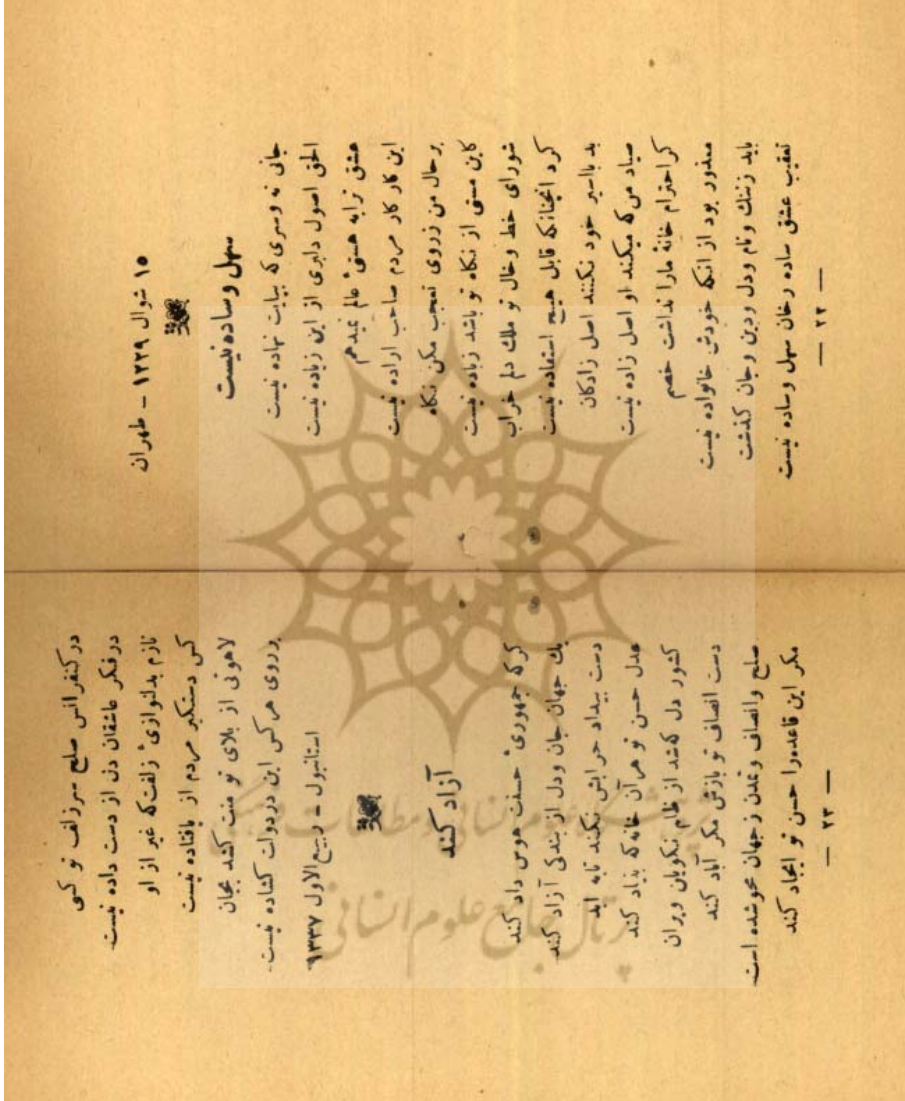 ۱۵ شوال ۱۳۲۹ - طهران
سهل و ساده نیست
جانی نه و سری که بپایت نهاده نیست
الحق اصول دلبری از این زیاده نیست
عشق ترا به هستیٔ عالم نمیدهم
این کار کار مردم صاحب اراده نیست
بر حال من ز روی تعجب مکن نگاه
کاین مستی از نگاه تو باشد ز باده نیست
شورای خط و خال تو ملک دلم خراب
کرد آنچنانکه قابل هیچ استفاده نیست
بد با اسیر خود نکنند اصل زادگان
صیاد من که میکند او اصل زاده نیست
گر احترام خانهٔ ما را نداشت خصم
معذور بود از آنکه خودش خانواده نیست
باید ز ننگ و نام و دل و دین و جان گذشت
تعقیب عشق ساده رخان سهل و ساده نیست
— ۲۲ —
در کنفرانس صلح سر زلف تو کسی
در فکر عاشقان دل از دست داده نیست
نازم بدلنوازیٔ زلفت که غیر از او
کس دستگیر مردم از پا فتاده نیست
لاهوتی از بلای تو منت کشد بجان
بر روی هر کس این در دولت گشاده نیست.
استانبول - ربیع الاول ۱۳۳۷
آزاد کند
گر که جمهوریٔ حسنت هوس داد کند
یک جهان جان و دل از بندگی آزاد کند
دست بیداد خرابش نکند تا به ابد
عدل حسن تو هر آن خانه که بنیاد کند
کشور دل که شد از ظلم نکویان ویران
دست انصاف تو بازش مگر آباد کند
صلح و انصاف و تمدن ز جهان محو شده است
مگر این قاعده را حسن تو ایجاد کند
— ۲۳ —
پژوهشگاه علوم انسانی و مطالعات فرهنگی
پرتال جامع علوم انسانی